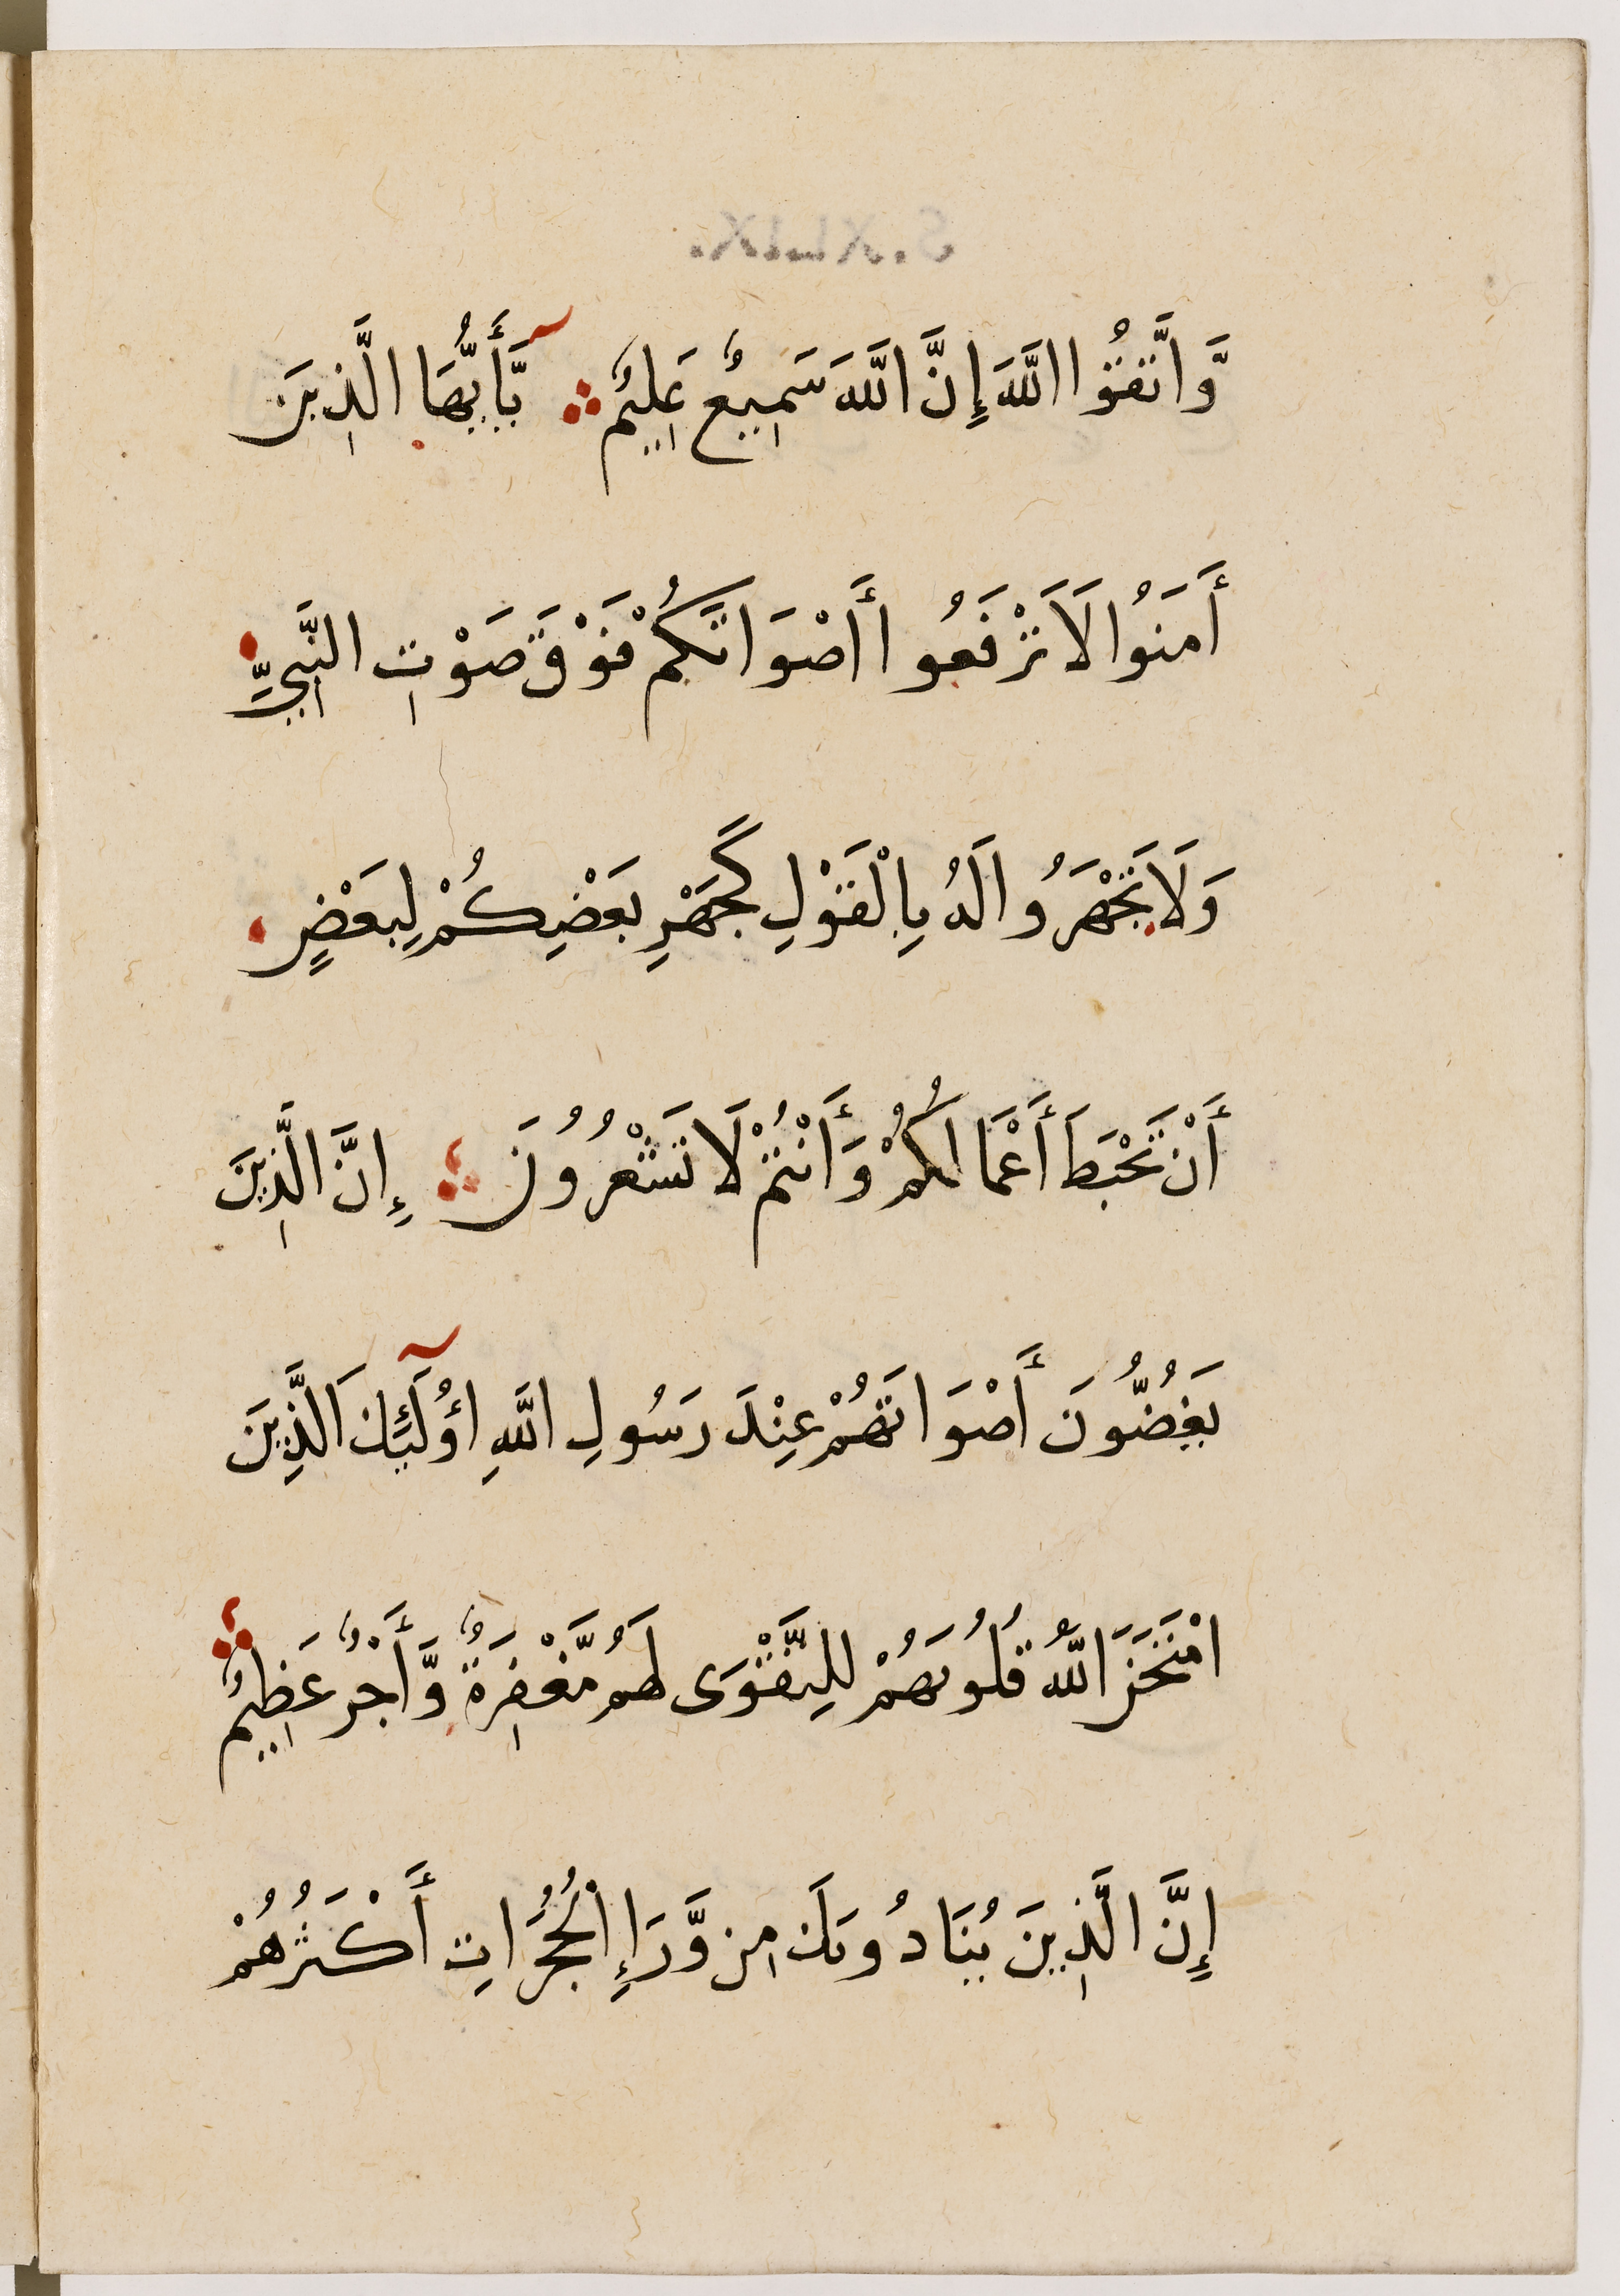 S.XLIX.
وَّاتَّقُوا اللَّهَ إِنَّ اللَّهَ سَمِيعٌ عَلِيمٌ يَّأَيُّهَا الَّذِينَ
أَمَنُوا لَا تَرْفَعُوا أَصْوَاتَكُمْ فَوْقَ صَوْتِ النَّبِيِّ
وَلَا تَجْهَرُوا لَهُ بِالْقَوْلِ كَجَهْرِ بَعْضِكُمْ لِبَعْضٍ
أَنْ تَحْبَطَ أَعْمَالُكُمْ وَأَنْتُمْ لَا تَشْعُرُونَ إِنَّ الَّذِينَ
يَغُضُّونَ أَصْوَاتَهُمْ عِنْدَ رَسُولِ اللَّهِ أُولَئِكَ الَّذِينَ
امْتَحَنَ اللَّهُ قُلُوبَهُمْ لِلتَّقْوَى لَهُم مَّغْفِرَةٌ وَّأَجْرٌ عَظِيمٌ
إِنَّ الَّذِينَ يُنَادُونَكَ مِن وَّرَاءِ الْحُجُرَاتِ أَكْثَرُهُمْ